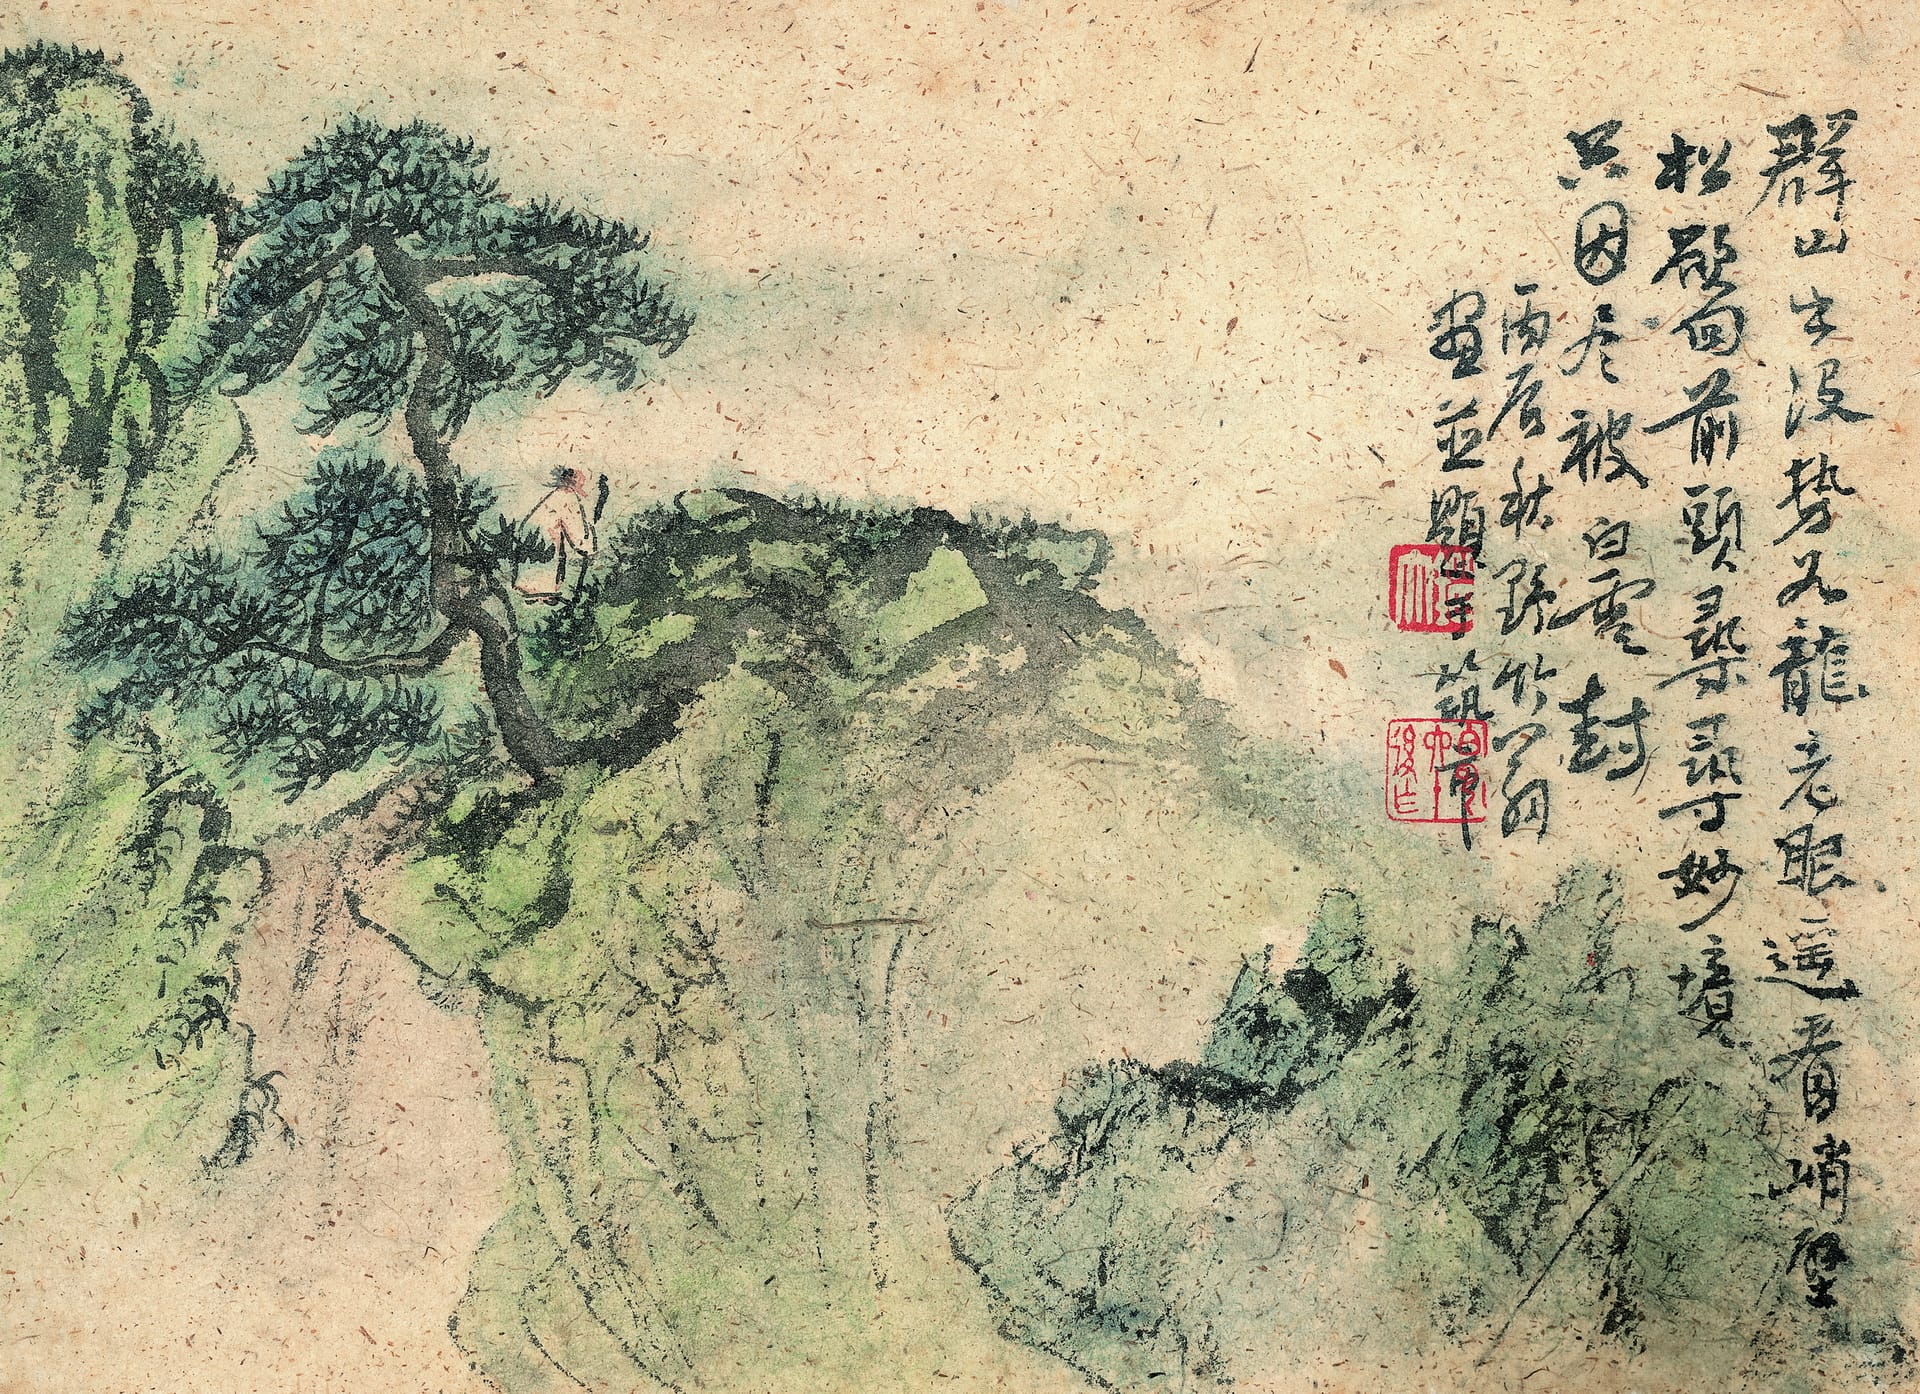 群山出没势如龍老眼遥看峭壁
松欲向前頭尋尋妙境
只因尽被白雲封
丙辰秋野竹翁
畫並題于筑章